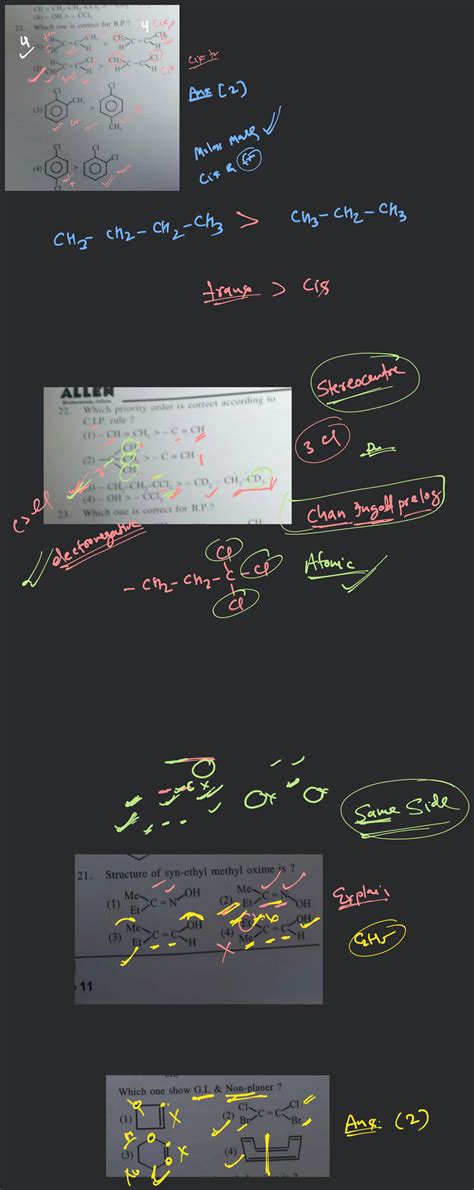 (3) – CH₂-CH₂-CCl₃
(4) – OH > – CCl₃
23. Which one is correct for B.P.?
4
4
Cis
(1)
>
(2)
>
Cis
Ans (2)
Cl
CH₃
>
Cl
CH₃
(3)
Molar Mass
Cis &
Cl
>
Cl
Cl
(4)
CH₃– CH₂– CH₂– CH₃ > CH₃– CH₂– CH₃
trans > Cis
ALLEN
22. Which priority order is correct according to
C.I.P. rule ?
(1) – CH = CH₂ > – C ≡ CH
(2) – > – C ≡ CH
(3) – CH₂-CH₂-CCl₃ > – CD₂ – CH₂-CD₃
(4) – OH > – CCl₃
23. Which one is correct for B.P.?
Stereocentre
3 Cl
Chan Ingold prelog
electronegative
Atomic
Cl
– CH₂– CH₂– C – Cl
Cl
Same Side
21. Structure of syn-ethyl methyl oxime is ?
(1) Me Et C = N OH
(2) Me Et C = N OH
(3) Me Et C = C OH H
(4) Et Me C = C OH H
Explain
C₂H₅
11
Which one show G.I. & Non-planer ?
(1) X
(2) Cl Br C = C Cl Br
(3) X
(4)
Ans: (2)